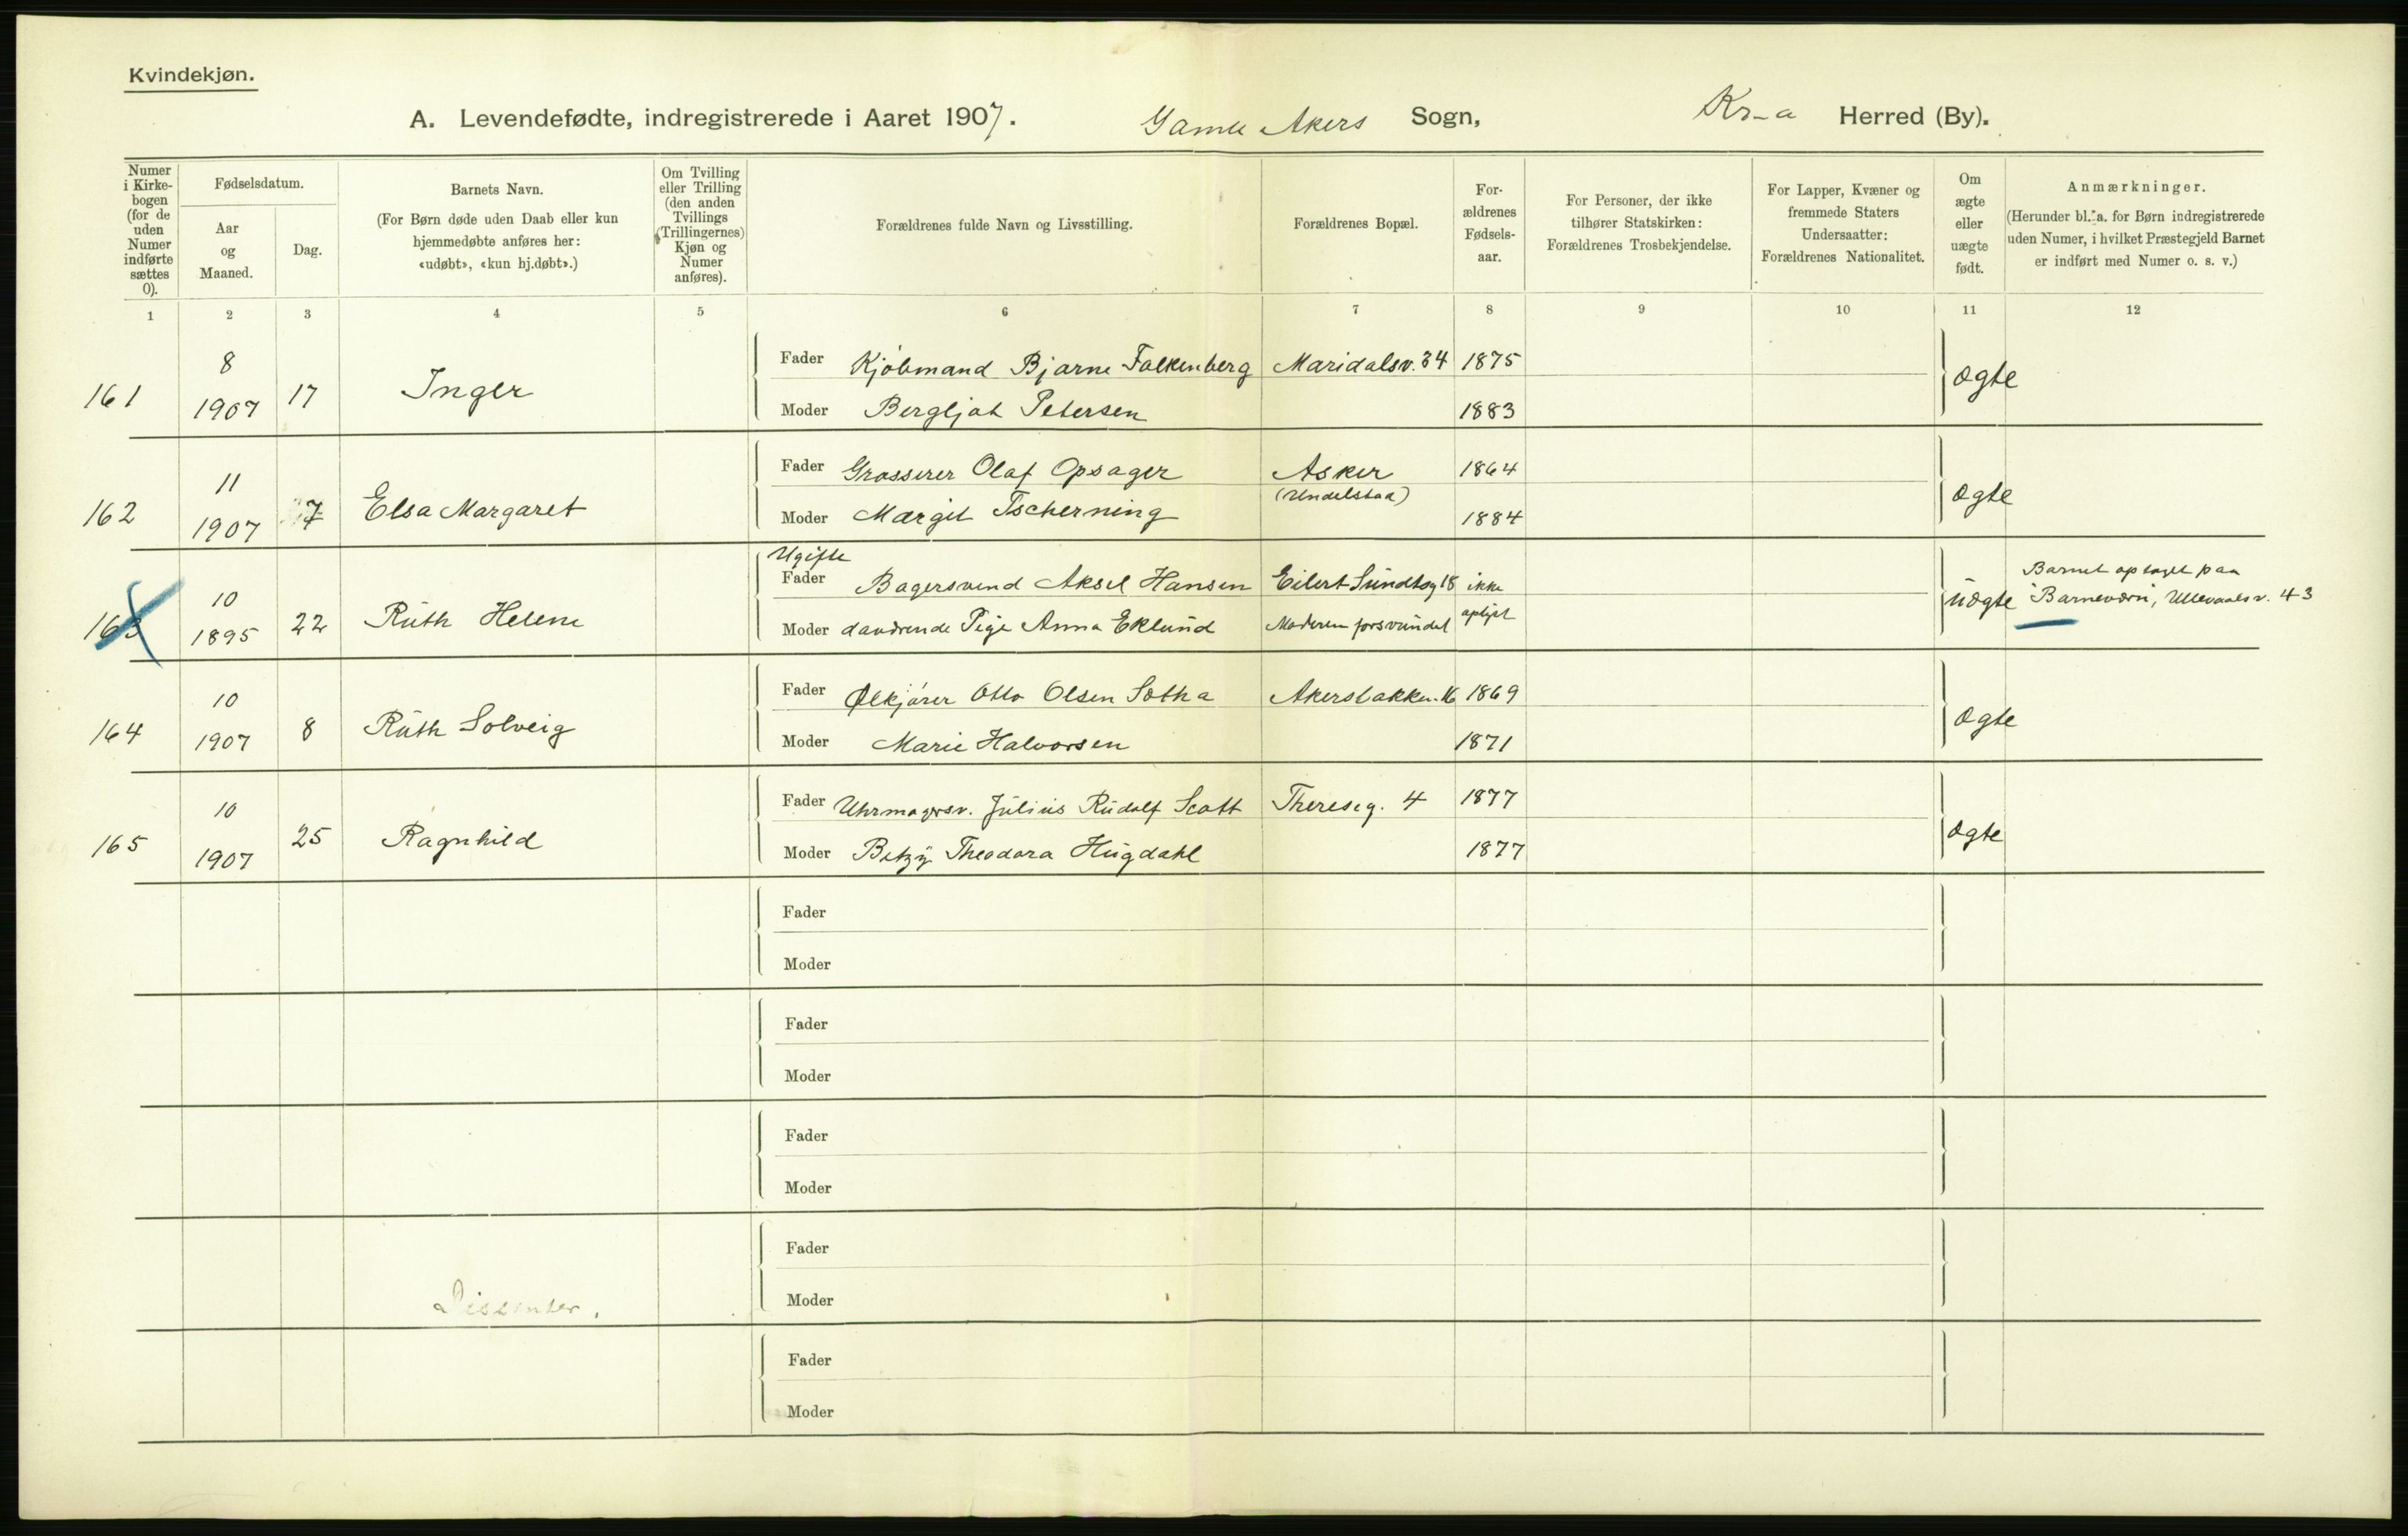 Kvindekjøn.
A. Levendefødte, indregistrerede i Aaret 1907. Gamle Akers Sogn, Kr-a Herred (By).
Numer i Kirke-bogen (for de uden Numer indførte sættes 0).
Fødselsdatum.
Aar og Maaned.
Dag.
Barnets Navn.
(For Børn døde uden Daab eller kun hjemmedøbte anføres her: «udøbt», «kun hj.døbt».)
Om Tvilling eller Trilling (den anden Tvillings (Trillingernes) Kjøn og Numer anføres).
Forældrenes fulde Navn og Livsstilling.
Forældrenes Bopæl.
For-ældrenes Fødsels-aar.
For Personer, der ikke tilhører Statskirken: Forældrenes Trosbekjendelse.
For Lapper, Kvæner og fremmede Staters Undersaatter: Forældrenes Nationalitet.
Om ægte eller uægte født.
Anmærkninger.
(Herunder bl. a. for Børn indregistrerede uden Numer, i hvilket Præstegjeld Barnet er indført med Numer o. s. v.)
1 2 3 4 5 6 7 8 9 10 11 12
161 8 1907 17 Inger
Fader Kjøbmand Bjarne Falkenberg Maridalsv. 34 1875 ægte
Moder Bergljot Petersen 1883
162 11 1907 7 Elsa Margaret
Fader Grosserer Olaf Opsager Asker 1864 ægte
(Undelstad)
Moder Margit Tscherning 1884
Ugifte
163 10 1895 22 Ruth Helene
Fader Bagersvend Aksel Hansen Eilert Sundtsg 18 ikke uægte Barnet optaget paa
Moder daværende Pige Anna Eklund Moderen forsvundet oplyst Barneværn, Ullevaalsv. 43
164 10 1907 8 Ruth Solveig
Fader Ølkjører Otto Olsen Sætha Akersbakken. 16 1869 ægte
Moder Marie Halvorsen 1871
165 10 1907 25 Ragnhild
Fader Uhrmagersv. Julius Rudolf Scott Thereseg. 4 1877 ægte
Moder Betzy Theodora Hugdahl 1877
Fader
Moder
Fader
Moder
Fader
Moder
Fader
Dissenter.
Moder
Fader
Moder